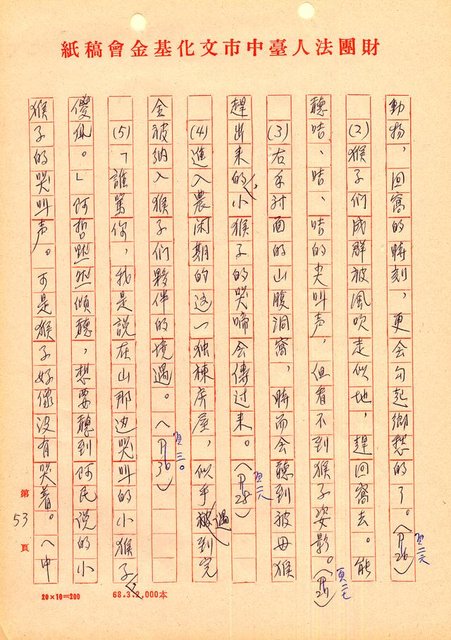 財團法人臺中市文化基金會稿紙
動物，回窩的時刻，更会勾起鄉愁的了。（P26）頁二六
(2)猴子们成群被風吹走似地，趕回窩去。能
聽咭、咭、咭的尖叫声，但看不到猴子姿影。（P27）
(3)右手对面的山腹洞窩，時而会聽到被母猴
趕出来的小猴子的哭啼会傳过来。（P28）
(4)進入農闲期的这一独棟房屋，似乎遇到完
全被納入猴子们夥伴的境遇。（P30）頁三〇
(5)「誰第你，我是說在山那边哭叫的小猴子
傻瓜。」阿哲默然傾聽，想要聽到阿民說的小
猴子的哭叫声。可是猴子好像没有哭着。（中
第53頁
20×10=200
68.3.2,000本